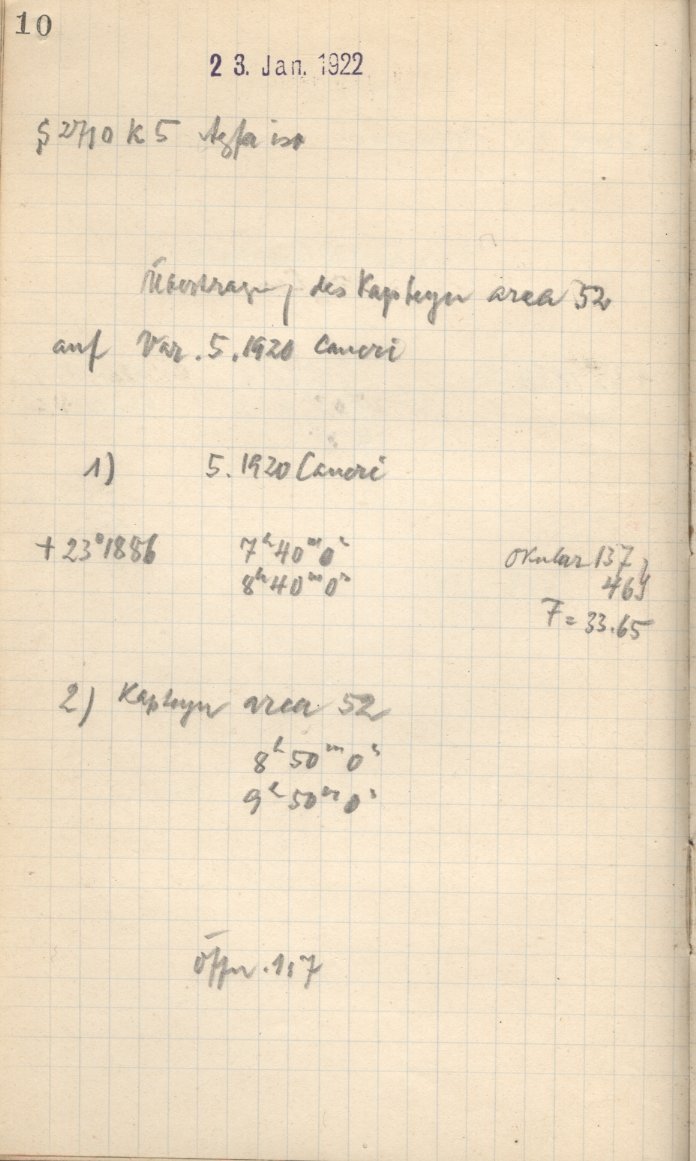 10
23. Jan. 1922
S 2710 K 5 Agfa iso
Übertragung des Kapteyn area 52
auf Var. 5.1920 Cancri
1) 5.1920 Cancri
+23°1886 7ʰ40ᵐ0ˢ Okular 137,
8ʰ40ᵐ0ˢ 46
F = 33.65
2) Kapteyn area 52
8ʰ50ᵐ0ˢ
9ʰ50ᵐ0ˢ
Öffn. 1:7